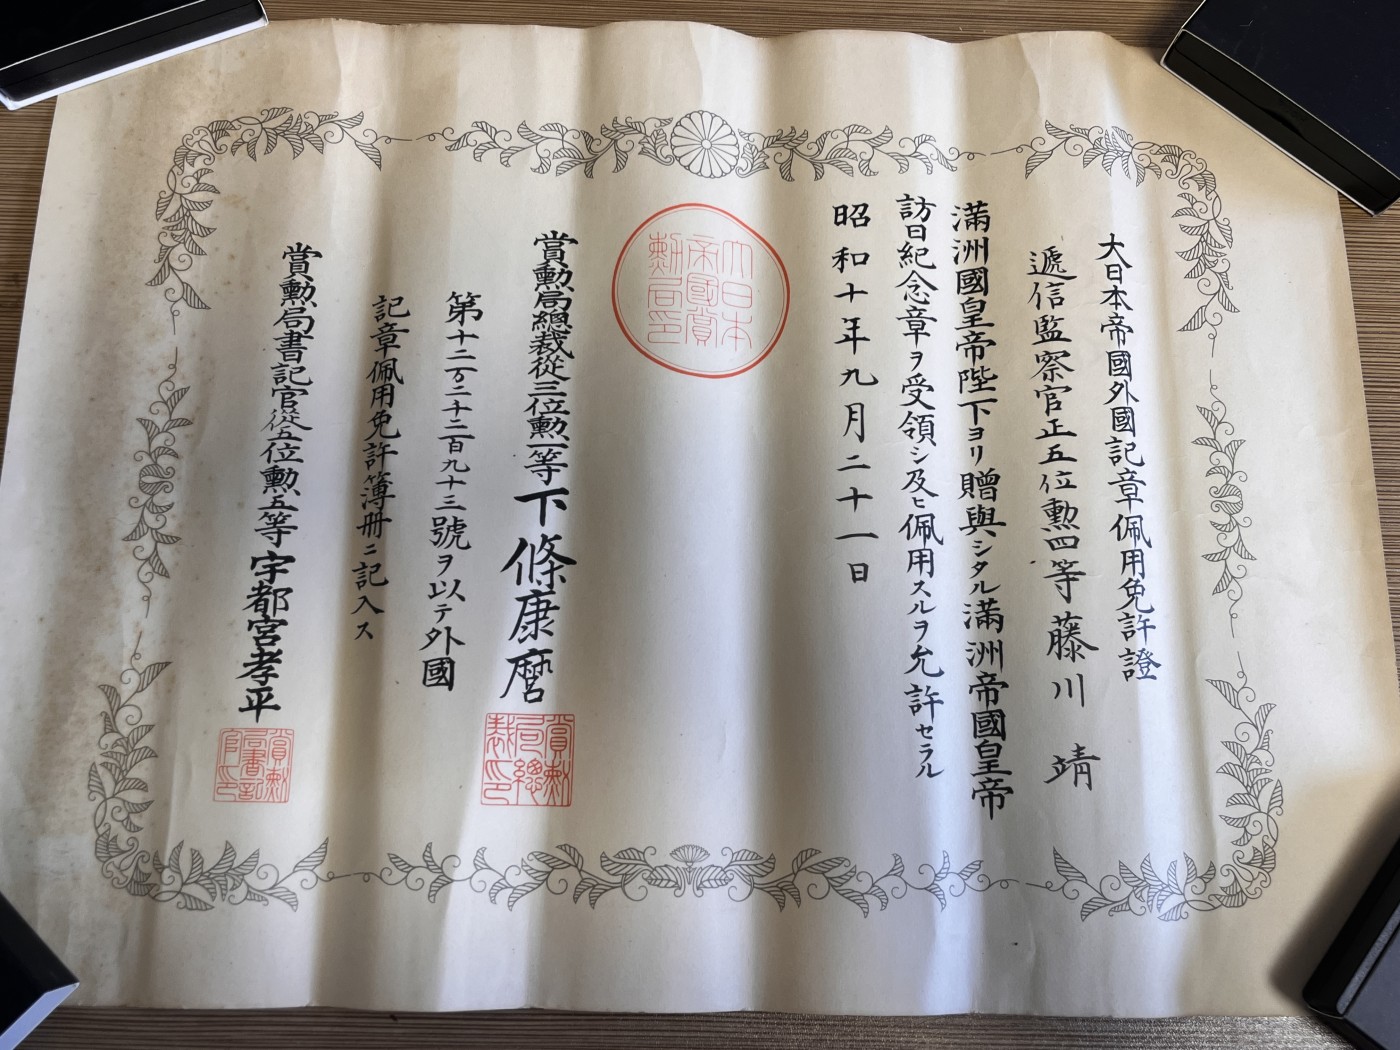 大日本帝國外國記章佩用免許證
遞信監察官正五位勲四等藤川 靖
滿洲國皇帝陛下ヨリ贈與シタル滿洲帝國皇帝
訪日紀念章ヲ受領シ及ヒ佩用スルヲ允許セラル
昭和十年九月二十一日
大日本
帝國賞
勲局印
賞勲局總裁從三位勲一等下條康麿
賞勲
局總
裁印
第十二万二千二百九十三號ヲ以テ外國
記章佩用免許簿册ニ記入ス
賞勲局書記官從五位勲五等宇都宮孝平
賞勲
局書記
官印